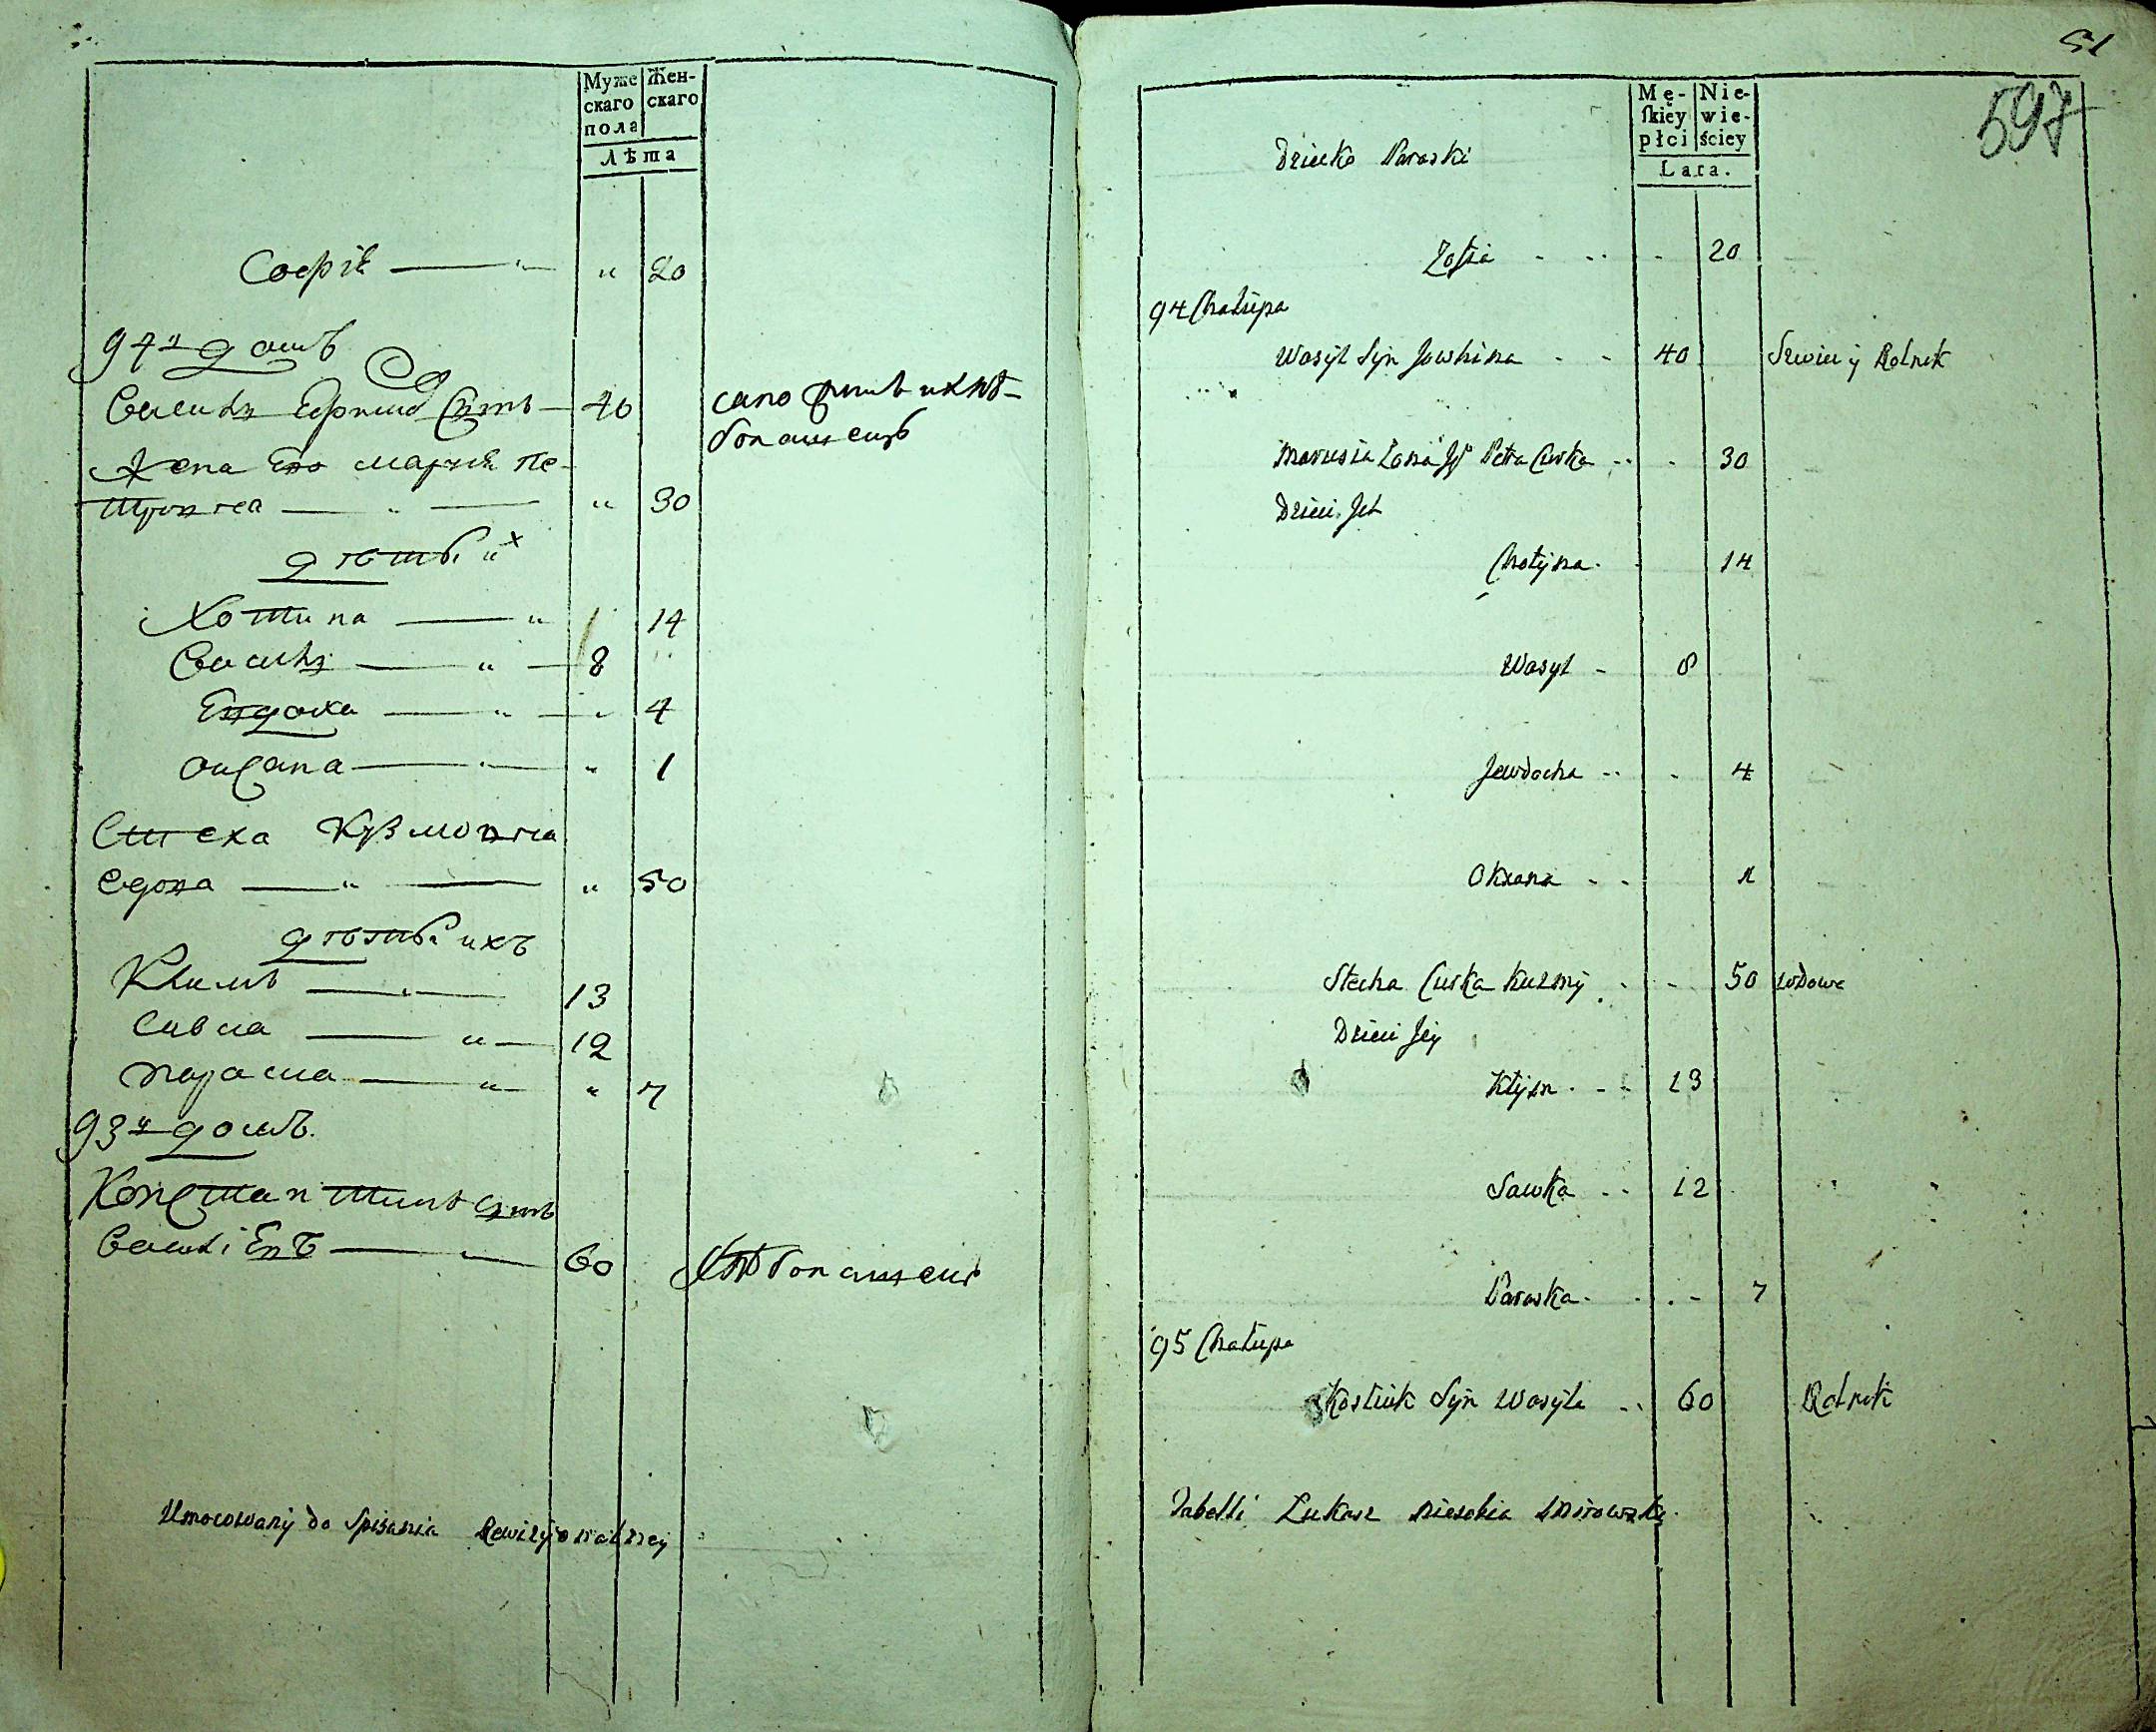 Муже
скаго
пола
Жен-
скаго
Лѣта
Софія — " 20
94й домъ
Василь Сынъ — 40
сапожникъ и хлѣ-
бопашецъ
Жена Его Марія Пе-
тровна — " 30
дѣти их
Хотина — " 14
Василь — " — 8
Евдоха — " — " 4
Оксана — " — " 1
Стеха Кузмовна
вдова — " — " 50
дѣти ихъ
Климъ — " — 13
Савка — " — 12
Параска — " — " 7
93й домъ.
Константинъ сынъ
Василіевъ — 60
хлѣбопашецъ
Umocowany do Spisania Rewizyonalney
51
597
Mę-
skiey
płci
Nie-
wie-
ściey
Lata.
Dziecko Paraski
Zofia - .. - 20
94 Chałupa
Wasyl Syn Jowchima - - 40 Szwiec y Rolnik
Marusia Żona Jo Petra Curka .. . 30
Dzieci Ich
Chotyna - 14
Wasyl - 8
Jewdocha .. . 4
Oksana - - 1
Stecha Curka Kuzmy - - 50 wdowa
Dzieci Jey
Kłym . - - 13
Sawka .. 12
Paraska - . . - 7
95 Chałupa
Kostiuk Syn Wasyla .. 60 Rolnik
Tabelli Łukasz